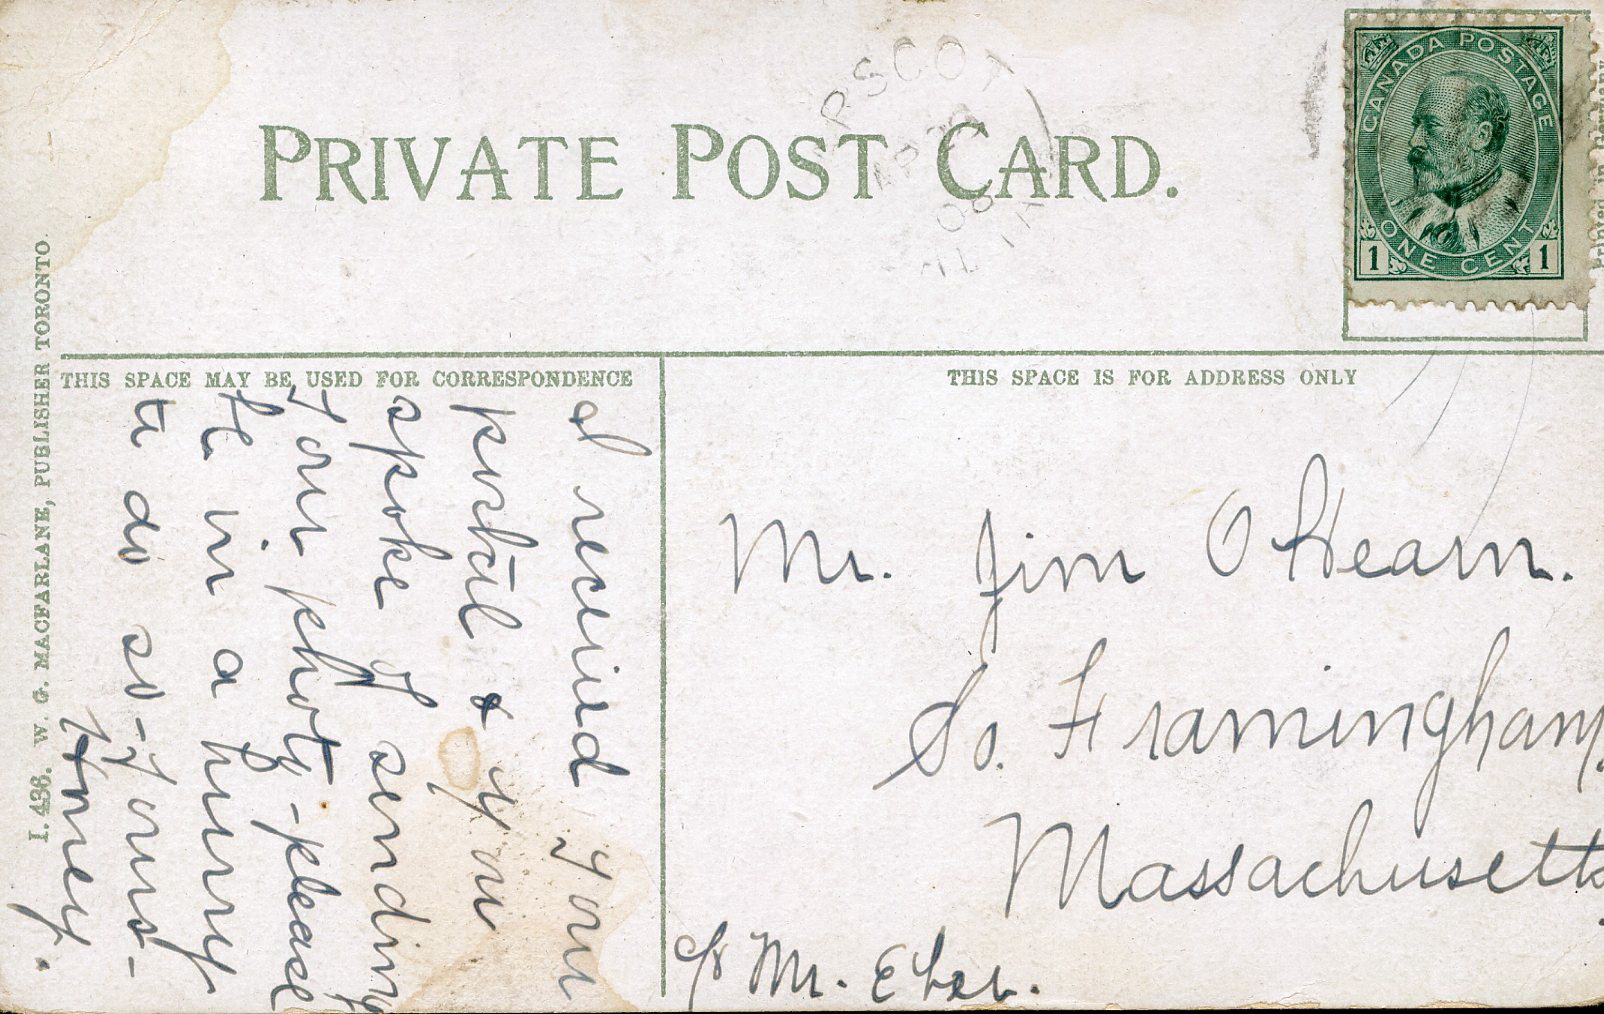 PRIVATE POST CARD.
CANADA POSTAGE
1 ONE CENT 1
PSCOT
AP
08
THIS SPACE MAY BE USED FOR CORRESPONDENCE
THIS SPACE IS FOR ADDRESS ONLY
I received your
postal & you
spoke of sending
your photo - please
be in a hurry
to do so - Yours -
Mr. Jim O Hearn.
So. Framingham.
Massachusetts.
c/o Mr. Eber.
I. 436. W. G. MACFARLANE, PUBLISHER TORONTO.
Printed in